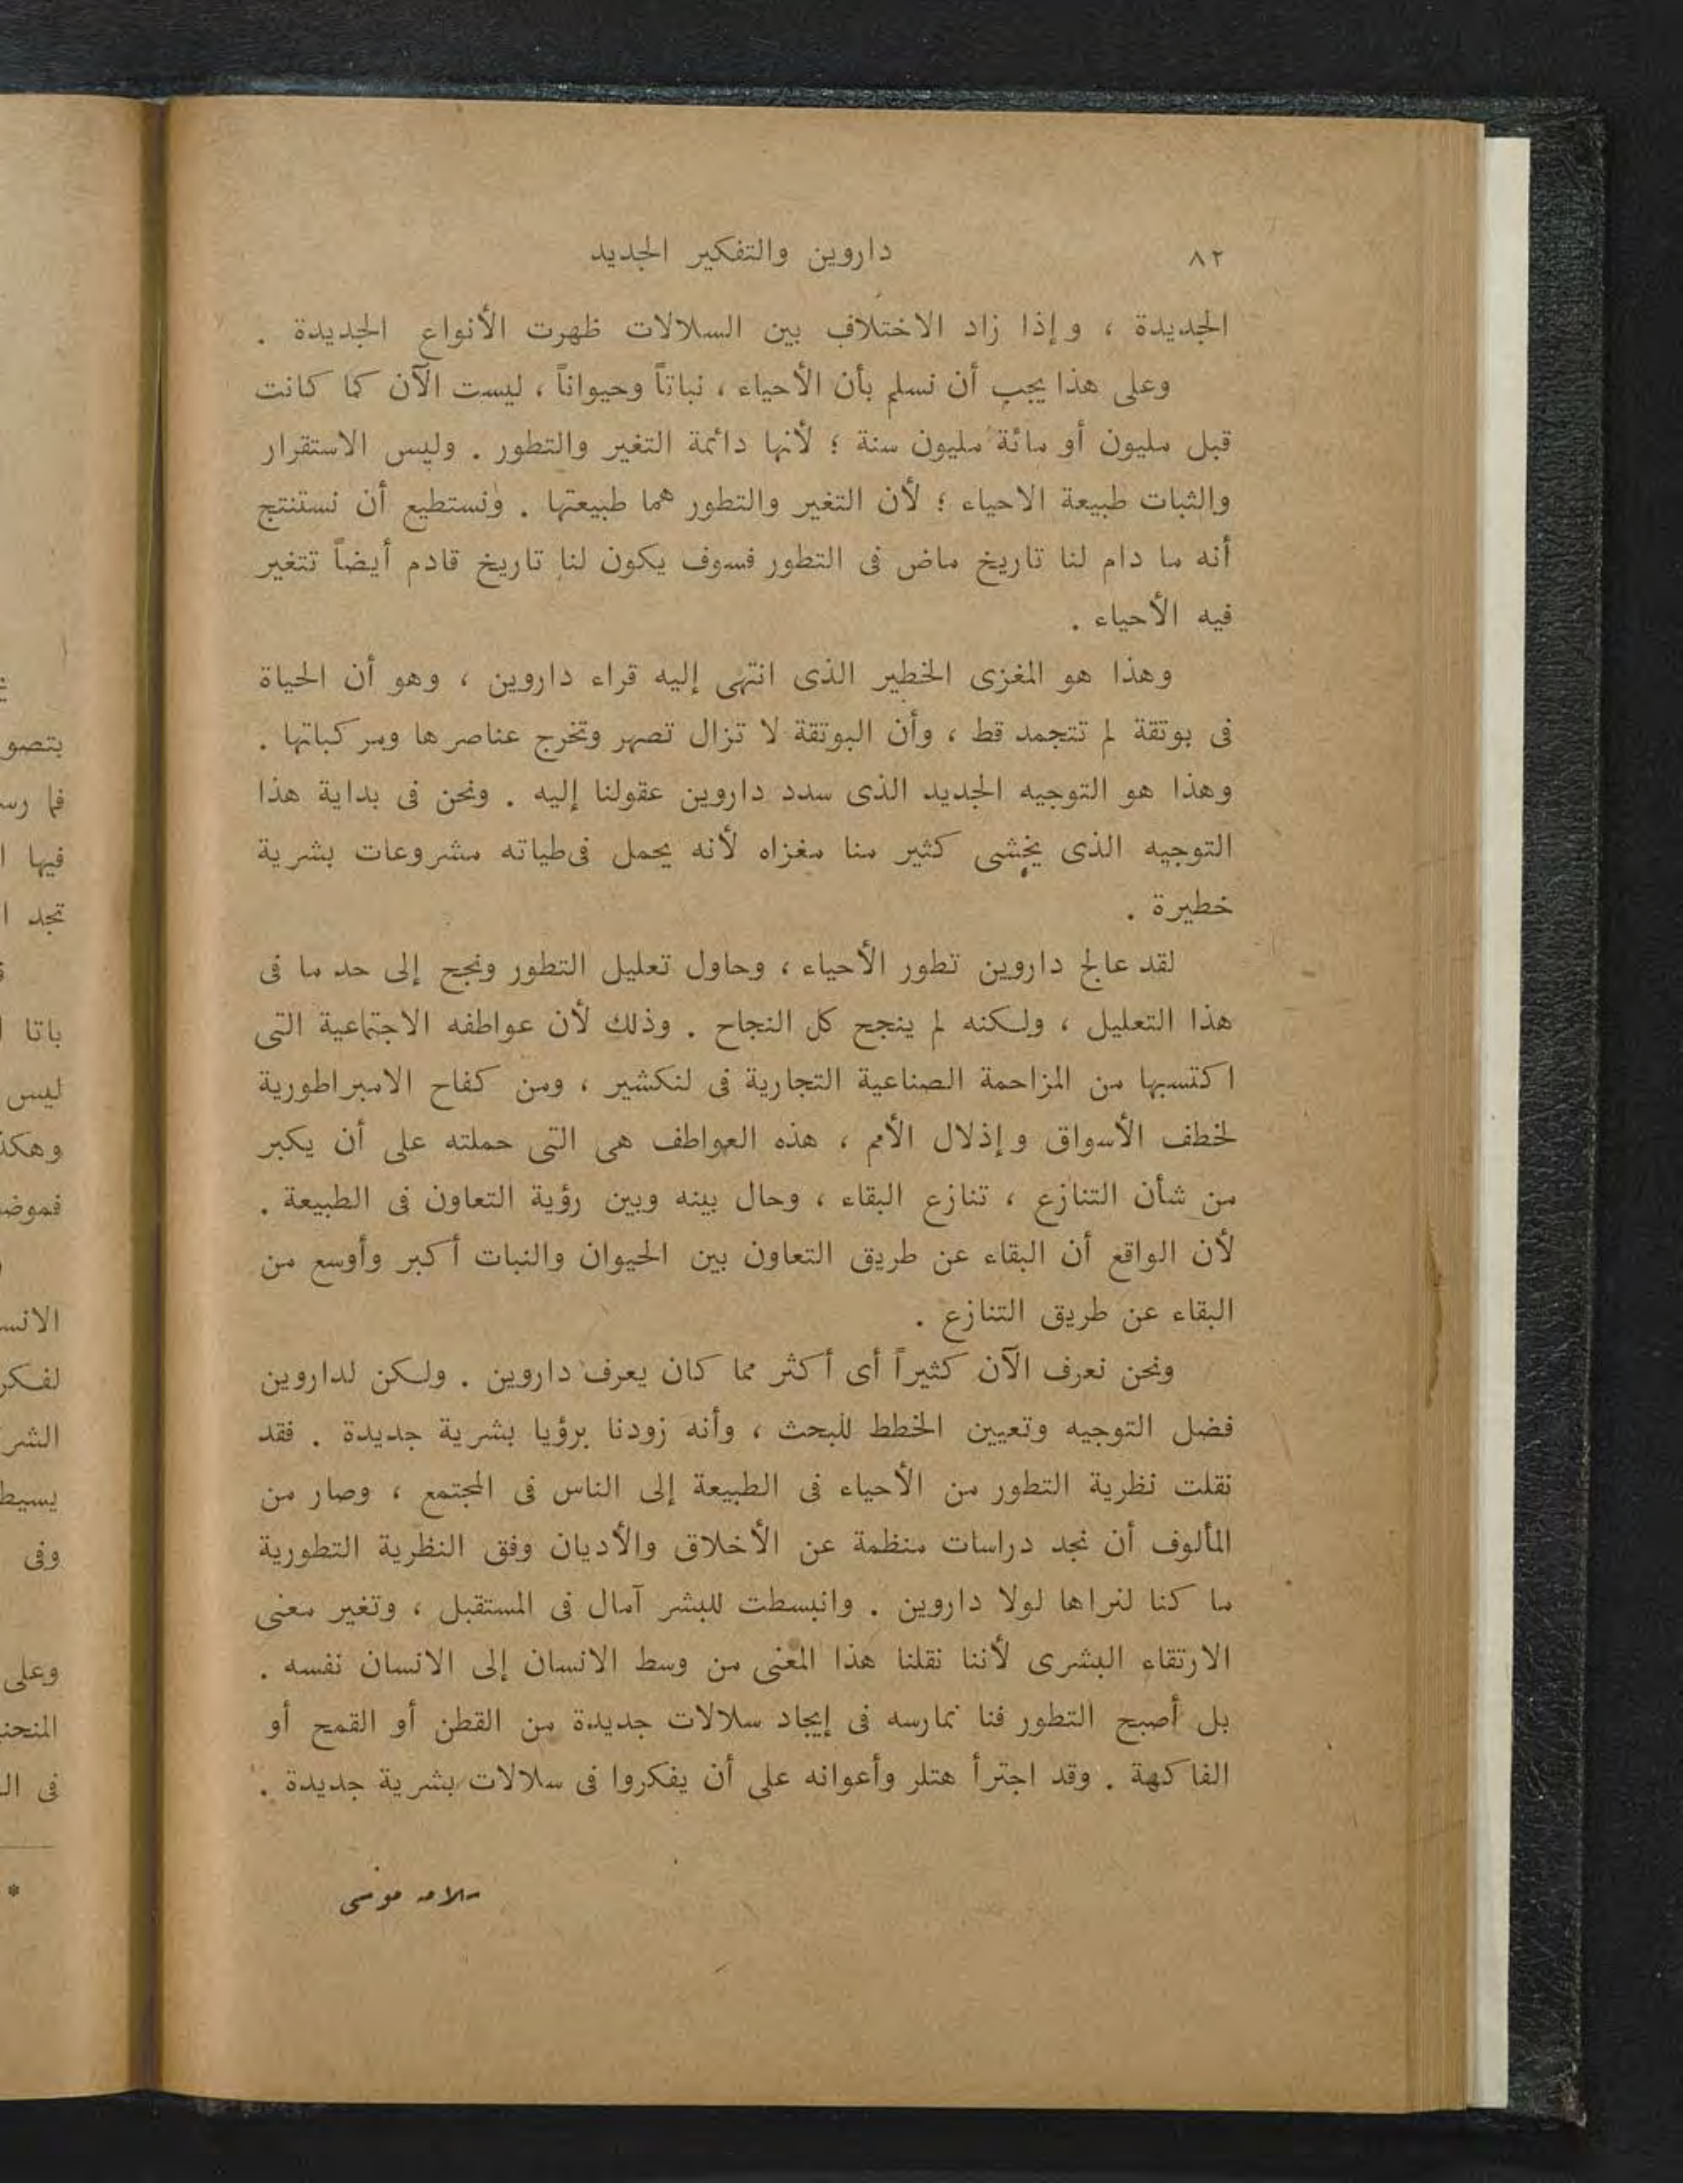 ٨٢
داروين والتفكير الجديد
الجديدة ، وإذا زاد الاختلاف بين السلالات ظهرت الأنواع الجديدة .
وعلى هذا يجب أن نسلم بأن الأحياء ، نباتاً وحيواناً ، ليست الآن كما كانت
قبل مليون أو مائة مليون سنة ؛ لأنها دائمة التغير والتطور . وليس الاستقرار
والثبات طبيعة الاحياء ؛ لأن التغير والتطور هما طبيعتها . ونستطيع أن نستنتج
أنه ما دام لنا تاريخ ماض فى التطور فسوف يكون لنا تاريخ قادم أيضاً تتغير
فيه الأحياء .
وهذا هو المغزى الخطير الذى انتهى إليه قراء داروين ، وهو أن الحياة
فى بوتقة لم تتجمد قط ، وأن البوتقة لا تزال تصهر وتخرج عناصرها ومركباتها .
وهذا هو التوجيه الجديد الذى سدد داروين عقولنا إليه . ونحن فى بداية هذا
التوجيه الذى يخشى كثير منا مغزاه لأنه يحمل فى طياته مشروعات بشرية
خطيرة .
لقد عالج داروين تطور الأحياء ، وحاول تعليل التطور ونجح إلى حد ما فى
هذا التعليل ، ولكنه لم ينجح كل النجاح . وذلك لأن عواطفه الاجتماعية التى
اكتسبها من المزاحمة الصناعية التجارية فى لنكشير ، ومن كفاح الامبراطورية
لخطف الأسواق وإذلال الأمم ، هذه العواطف هى التى حملته على أن يكبر
من شأن التنازع ، تنازع البقاء ، وحال بينه وبين رؤية التعاون فى الطبيعة .
لأن الواقع أن البقاء عن طريق التعاون بين الحيوان والنبات أكبر وأوسع من
البقاء عن طريق التنازع .
ونحن نعرف الآن كثيراً أى أكثر مما كان يعرف داروين . ولكن لداروين
فضل التوجيه وتعيين الخطط للبحث ، وأنه زودنا برؤيا بشرية جديدة . فقد
نقلت نظرية التطور من الأحياء فى الطبيعة إلى الناس فى المجتمع ، وصار من
المألوف أن نجد دراسات منظمة عن الأخلاق والأديان وفق النظرية التطورية
ما كنا لنراها لولا داروين . وانبسطت للبشر آمال فى المستقبل ، وتغير معنى
الارتقاء البشرى لأننا نقلنا هذا المعنى من وسط الانسان إلى الانسان نفسه .
بل أصبح التطور فنا نمارسه فى إيجاد سلالات جديدة من القطن أو القمح أو
الفاكهة . وقد اجترأ هتلر وأعوانه على أن يفكروا فى سلالات بشرية جديدة .
سلامه موسى
بتصو
فما رس
فيها ا
تجد ا
باتا ا
ليس
وهكذ
فموض
الانس
لفكر
الشر
يسيط
وفى
وعلى
المنحن
فى ال
*